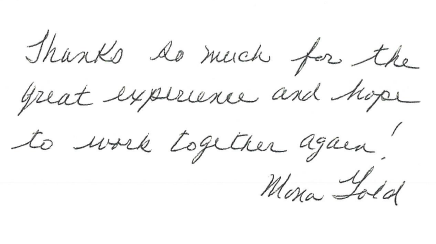 Thanks so much for the
great experience and hope
to work together again!
Mona Gold